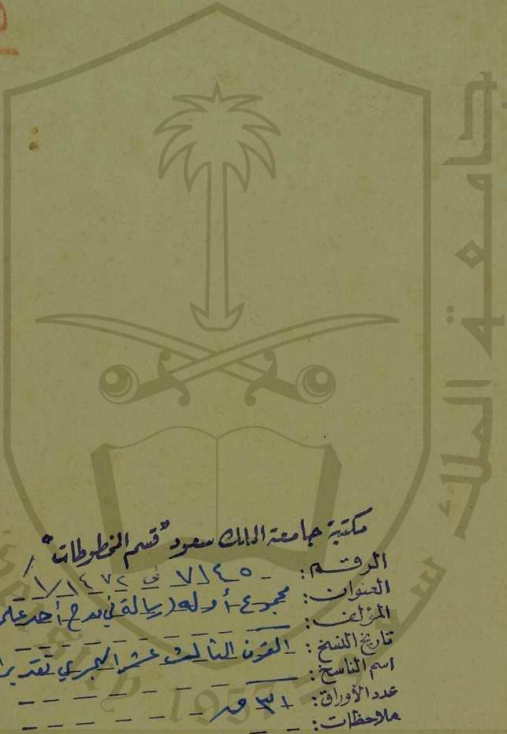 مكتبة جامعة الملك سعود "قسم المخطوطات"
الرقم: ٧١٤٥ ف ١٤٧٢/١
العنوان: مجموع أوله (رسالة في مدح أحد علم
المؤلف:
تاريخ النسخ: القرن الثالث عشر الهجري تقديرا
اسم الناسخ:
عدد الأوراق: ٣١ ق
ملاحظات:
جامعة الملك
1957